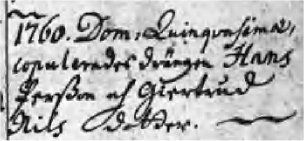 1760. Dom: Quinquagesima,
copulerades drängen Hans
Perßon och Giertrud
Nils dotter.